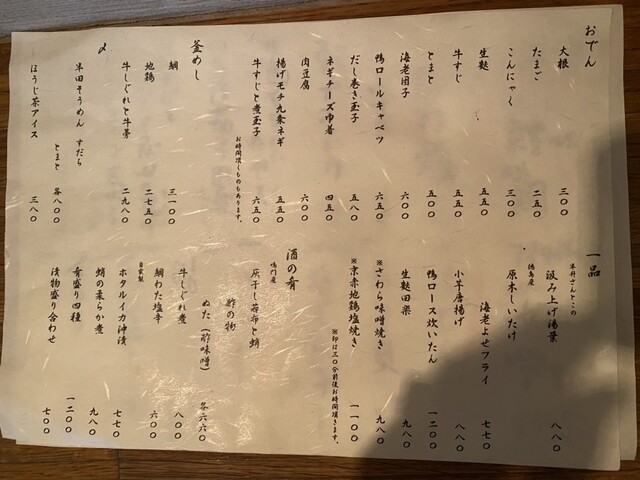 おでん
大根 三〇〇
たまご 二五〇
こんにゃく 三〇〇
生麩 五五〇
牛すじ 五五〇
とまと 五〇〇
海老団子 六〇〇
鴨ロールキャベツ 六五〇
だし巻き玉子 五八〇
ネギチーズ巾着 四五〇
肉豆腐 六〇〇
揚げモチ九条ネギ 五五〇
牛すじと煮玉子 六五〇
お時間頂くものもあります。
釜めし
鯛 三一〇〇
地鶏 二七五〇
牛しぐれと牛蒡 二九八〇
〆
半田そうめん すだち
とまと 各八〇〇
ほうじ茶アイス 三八〇
一品
本井さんとこの
汲み上げ湯葉 八八〇
徳島産
原木しいたけ
海老よせフライ 七七〇
小芋唐揚げ 八八〇
鴨ロース炊いたん 一二〇〇
生麩田楽 九八〇
※さわら味噌焼き 九八〇
※京赤地鶏塩焼き 一一〇〇
※印は三〇分前後お時間頂きます。
酒の肴
鳴門産
灰干し若布と蛸
酢の物
ぬた(酢味噌) 各六六〇
牛しぐれ煮 八〇〇
鯛わた塩辛 六〇〇
自家製
ホタルイカ沖漬 七七〇
蛸の柔らか煮 九八〇
肴盛り四種 一二〇〇
漬物盛り合わせ 七〇〇